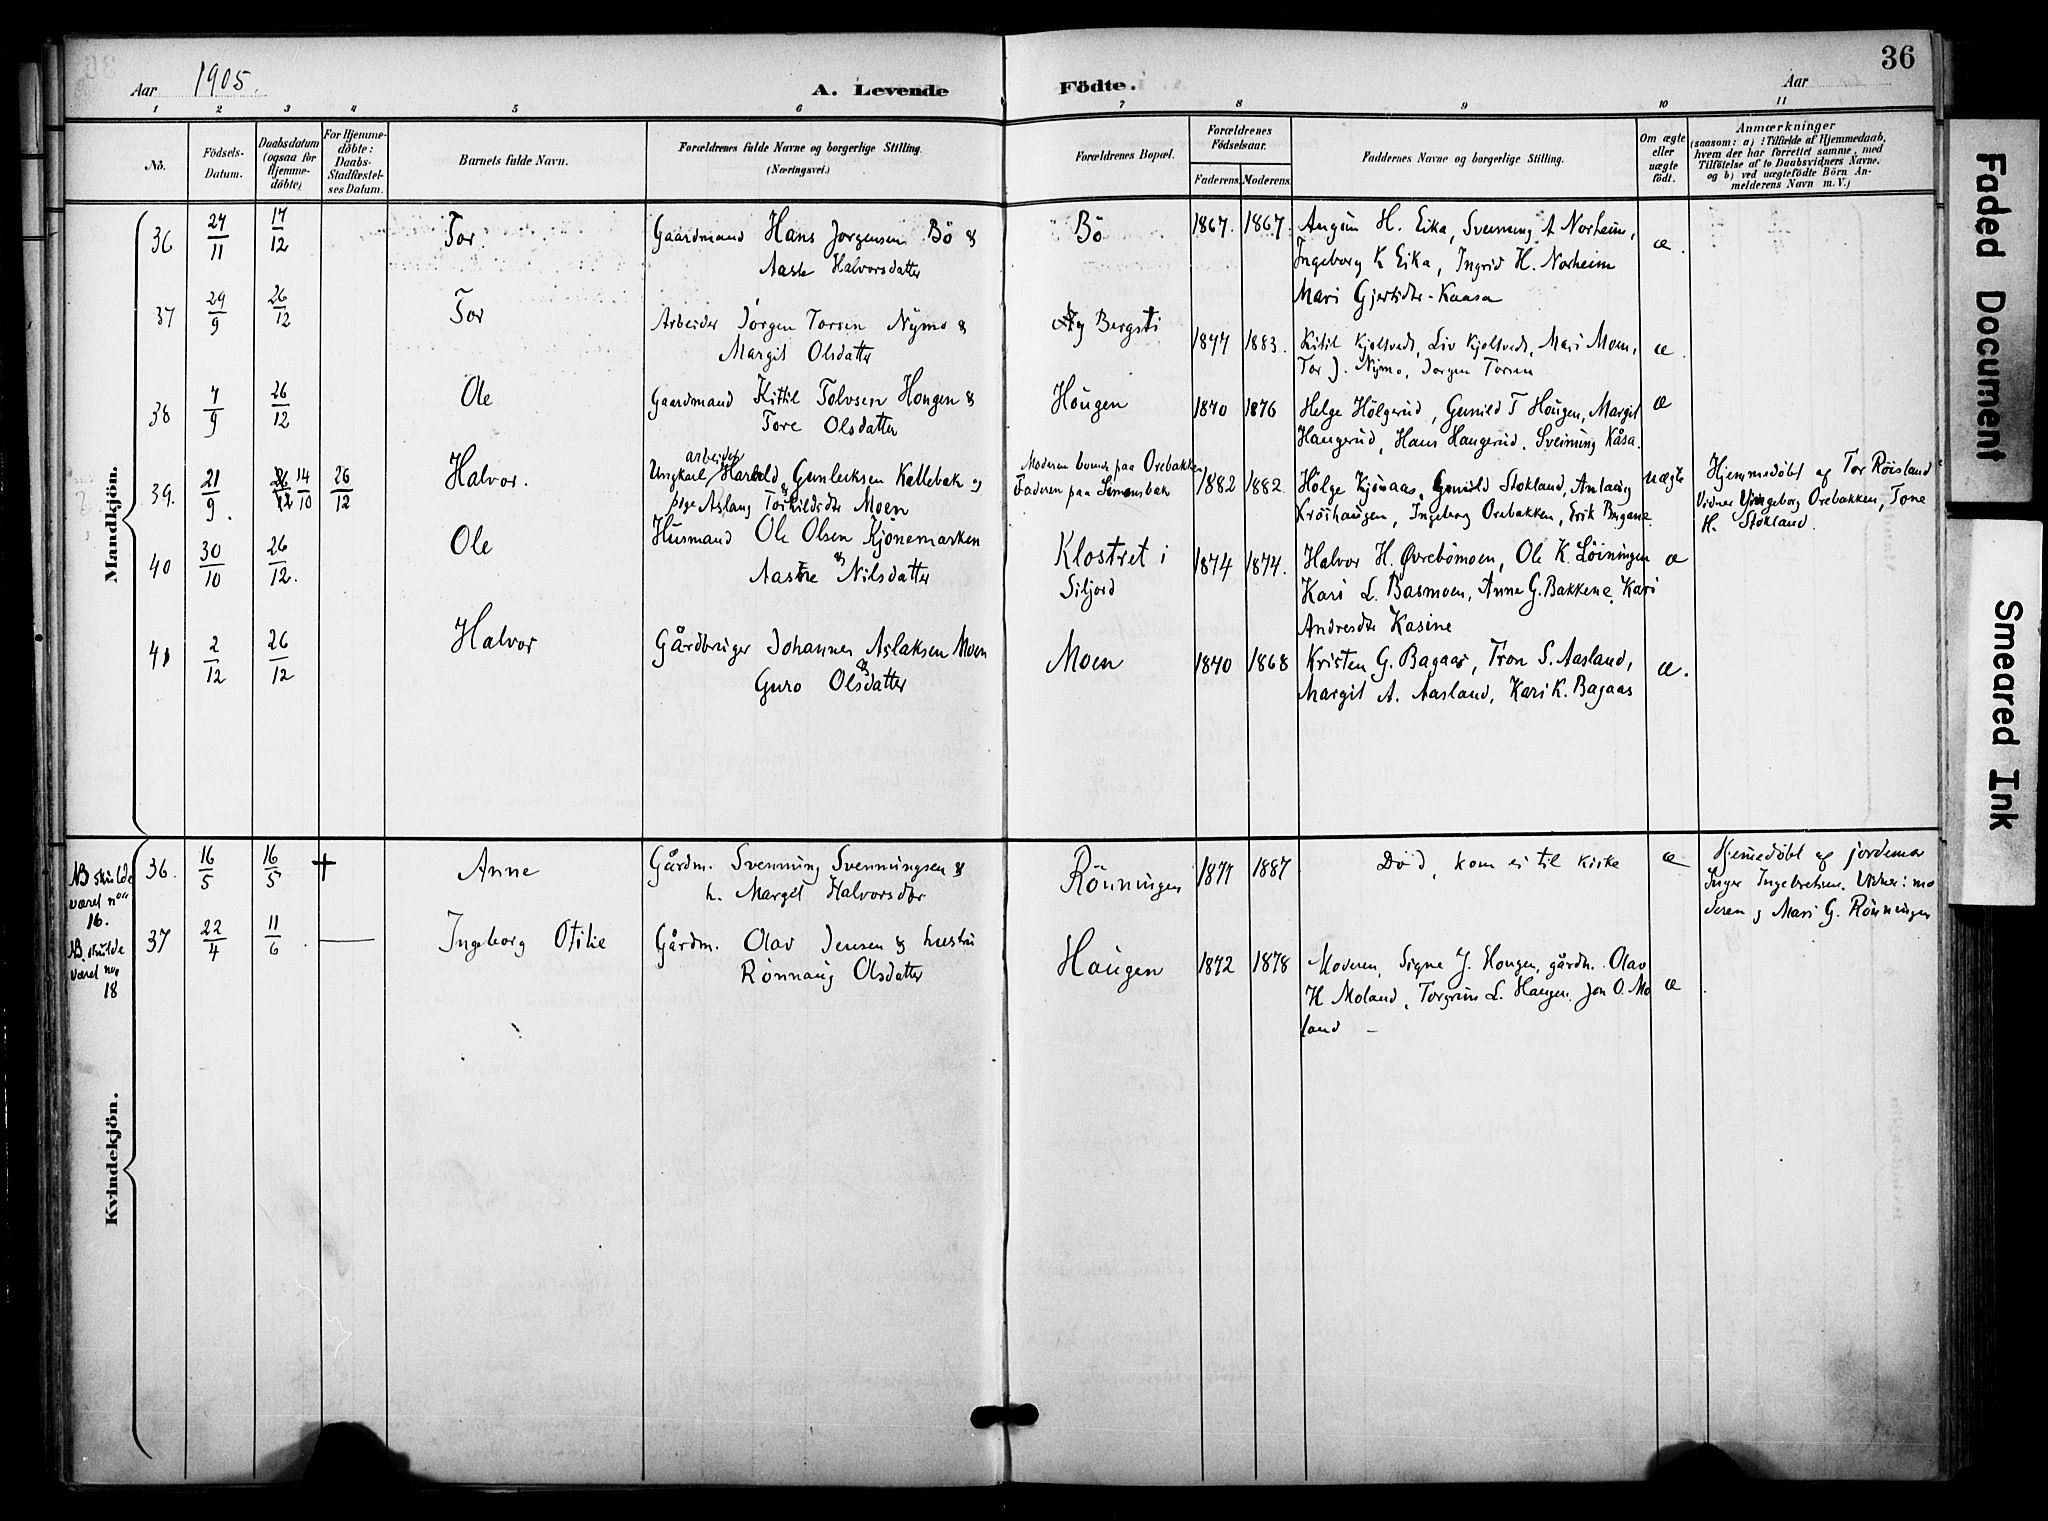 36
Aar 1905.
A. Levende Födte.
Aar
1 2 3 4 5 6 7 8 9 10 11
No.
Födsels-
Datum.
Daabsdatum
(ogsaa for
Hjemme-
döbte)
For Hjemme-
döbte:
Daabs-
Stadfæstel-
ses Datum.
Barnets fulde Navn.
Forældrenes fulde Navne og borgerlige Stilling.
(Næringsvei.)
Forældrenes Bopæl.
Forældrenes
Födselsaar.
Faderens. Moderens.
Faddernes Navne og borgerlige Stilling.
Om ægte
eller
uægte
födt.
Anmærkninger
(saasom: a) i Tilfælde af Hjemmedaab,
hvem der har forrettet samme, med
Tilföielse af to Daabsvidners Navne,
og b) ved uægtefödte Börn An-
melderens Navn m. V.)
Mandkjön.
36 27/11 17/12 Tor. Gaardmand Hans Jorgensen Bö &
Halvorsdatter
Bö 1867 1867 H. Eika, Sveinung A Norheim,
Ingeborg K Eika, Ingrid H. Norheim
Mari Gjertsdtr. Kaasa
æ
37 29/9 26/12 Tor Arbeider Jörgen Torsen Nymo &
Margit Olsdatter
Bergsti 1877 1883. Kittil Kjoltveds, Liv Kjoltveds, Mari Moen,
Tor J. Nymo, Jorgen Torsen
æ.
38 7/9 26/12 Ole Gaardmand Kittil Tolvsen Hougen &
Tore Olsdatter
Hougen 1870 1876 Helge Hölgerud, Gunild T Hougen, Margit
Haugerud, Hans Haugerud. Sveinung Kåsa.
æ
39. 21/9. 26/12 14/10 26/12 Halvor. arbeider
Ungkarl Harald Gunleiksen Kallebak og
pige Aslaug Torkildsdtr Moen
Moderen boende paa Orebakken
Faderen paa Simonsbak
1882 1882 Hölge Kjonaas, Gunild Stokland,
Kroshaugen, Ingeborg Orebakken, Erik Bergane
uægte
Hjemmedöbt af Tor Röisland
Vidner Ingeborg Orebakken, Tone
H. Stokland.
40 30/10 26/12. Ole Husmand Ole Olsen Kjonemarken
& Nilsdatter
Klostret i
Siljord
1874 1874. Halvor H. Øvrebömoen, Ole K. Löiningen
Kari L. Basmoen, Anne G. Bakkene, Kari
Andresdtr Kasine
æ
41 2/12 26/12 Halvor Gårdbruger Johannes Aslaksen Moen
& Guro Olsdatter
Moen 1870 1868 Kristen G. Bagaas, Tron S. Aasland,
Margit A. Aasland, Kari K. Bagaas
æ.
Kvindekjön.
NB skulde
været no
16.
36. 16/5 16/5 † Anne Gårdm. Svenning Svenningsen &
h. Margit Halvorsdtr
Rönningen 1877 1887 Död, kom ei til kirke æ
Hjemedöbt af jordemor
Inger Ingebretsen. Vidner: mo
deren & Mari G. Rönningen
NB. skulde
været no
18
37 22/4 11/6. — Ingeborg Otilie Gårdm. Olav Jensen & hustru
Rönnaug Olsdatter
Haugen 1872 1878 Moderen, Signe J. Hougen, gårdm. Olav
H Moland, Torgrim L. Haugen, Jon O. Mo
land –
æ
Faded Document
Smeared Ink